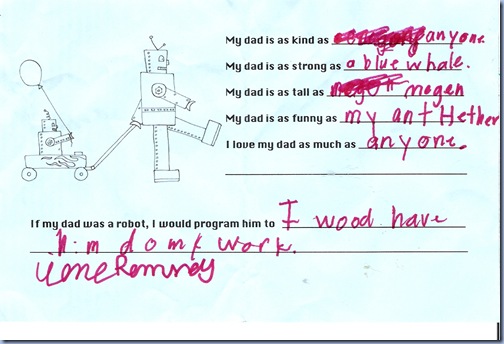 My dad is as kind as anyone.
My dad is as strong as a blue whale.
My dad is as tall as mogen
My dad is as funny as my ant Hether
I love my dad as much as anyone.
If my dad was a robot, I would program him to I wood have
him do my work.
Romney